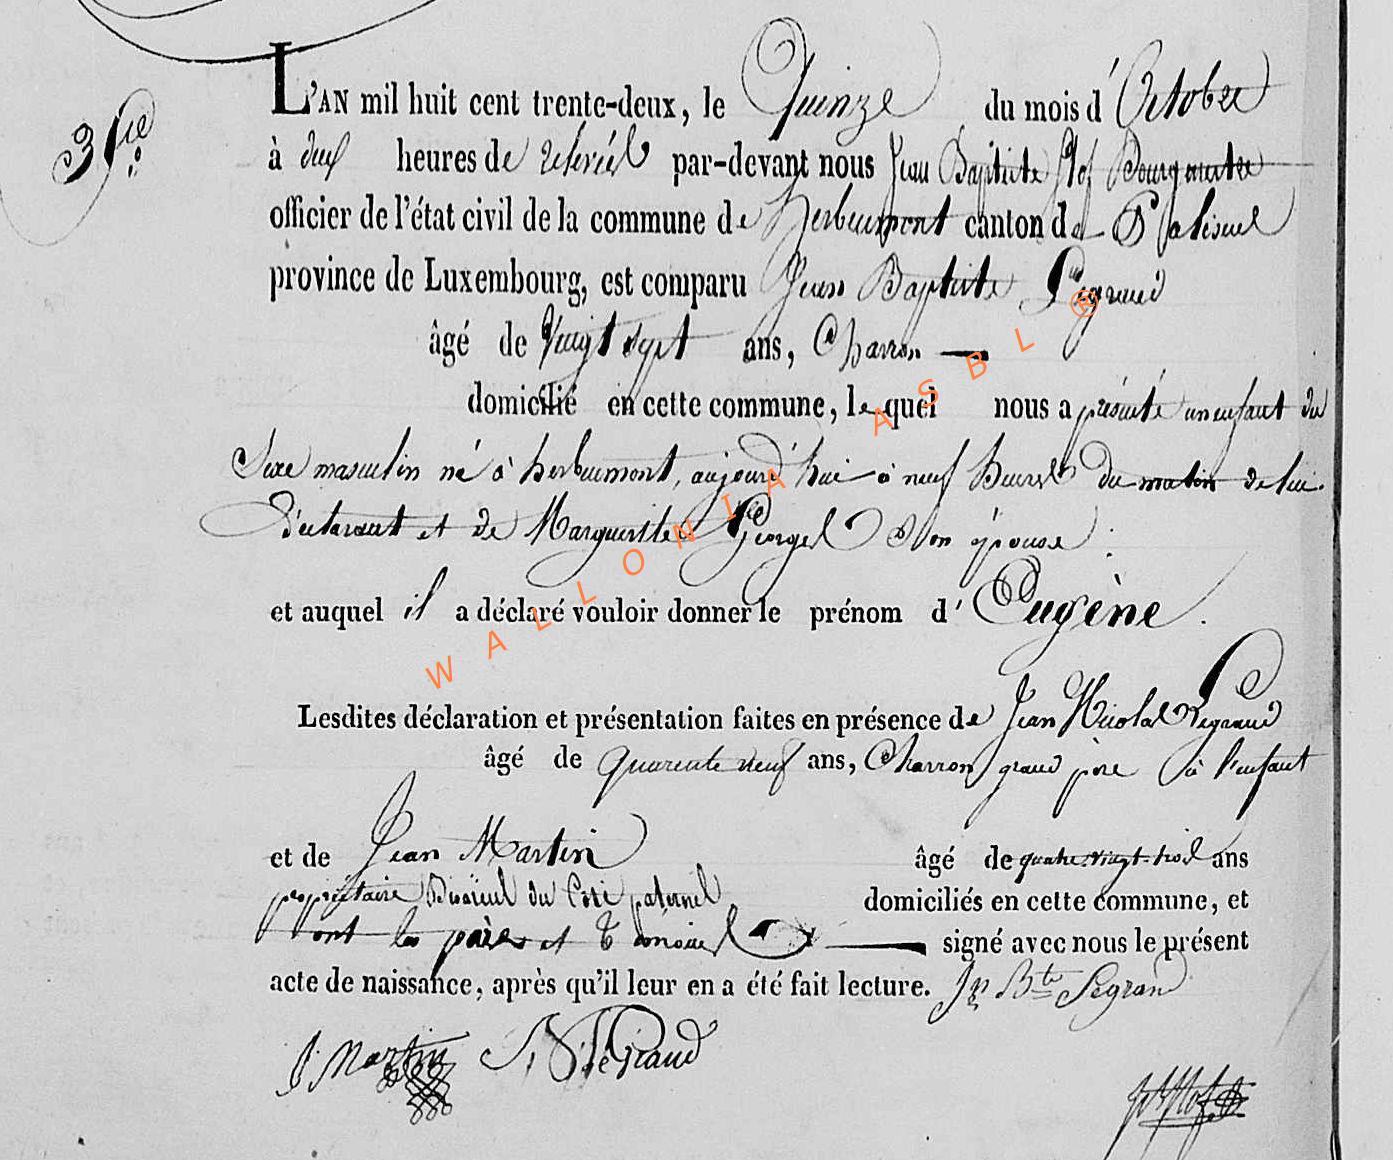 L'AN mil huit cent trente-deux, le Quinze du mois d'Octobre
31e
à deux heures de relevée par-devant nous Jean Baptiste Bourgmestre
officier de l'état civil de la commune de herbeumont canton de Paliseul
province de Luxembourg, est comparu Jean Baptiste Legrand
âgé de Vingt sept ans, Charron
domicilié en cette commune, lequel nous a présenté un enfant du
Sexe masculin né à herbeumont, aujourd'hui à neuf heures du matin de lui
Déclarant et de Marguerite Georges Son épouse
et auquel il a déclaré vouloir donner le prénom d'Eugène.
Lesdites déclaration et présentation faites en présence de Jean Nicolas Legrand
âgé de quarente neuf ans, Charron grand père à l'enfant
et de Jean Martin âgé de quatre-vingt-trois ans
propriétaire Bisaieul du Coté paternel domiciliés en cette commune, et
ont les père et témoins signé avec nous le présent
acte de naissance, après qu'il leur en a été fait lecture. Jn Bte Legrand
J. Martin JN leGrand
WALLONIA ASBL ®